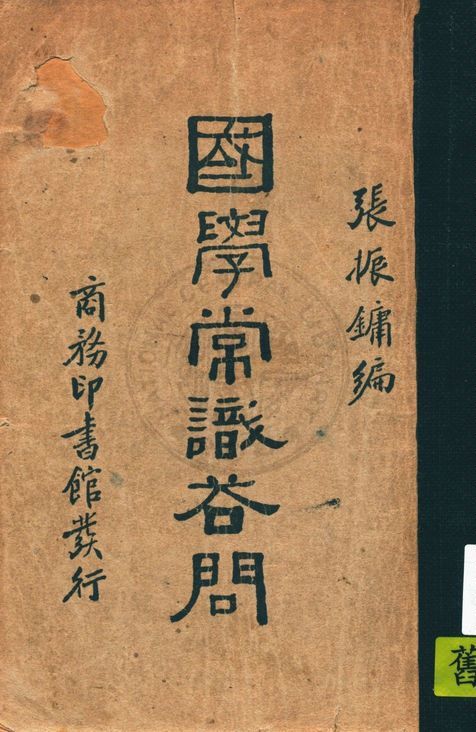 張振鏞編
國學常識荅問
商務印書館發行
舊